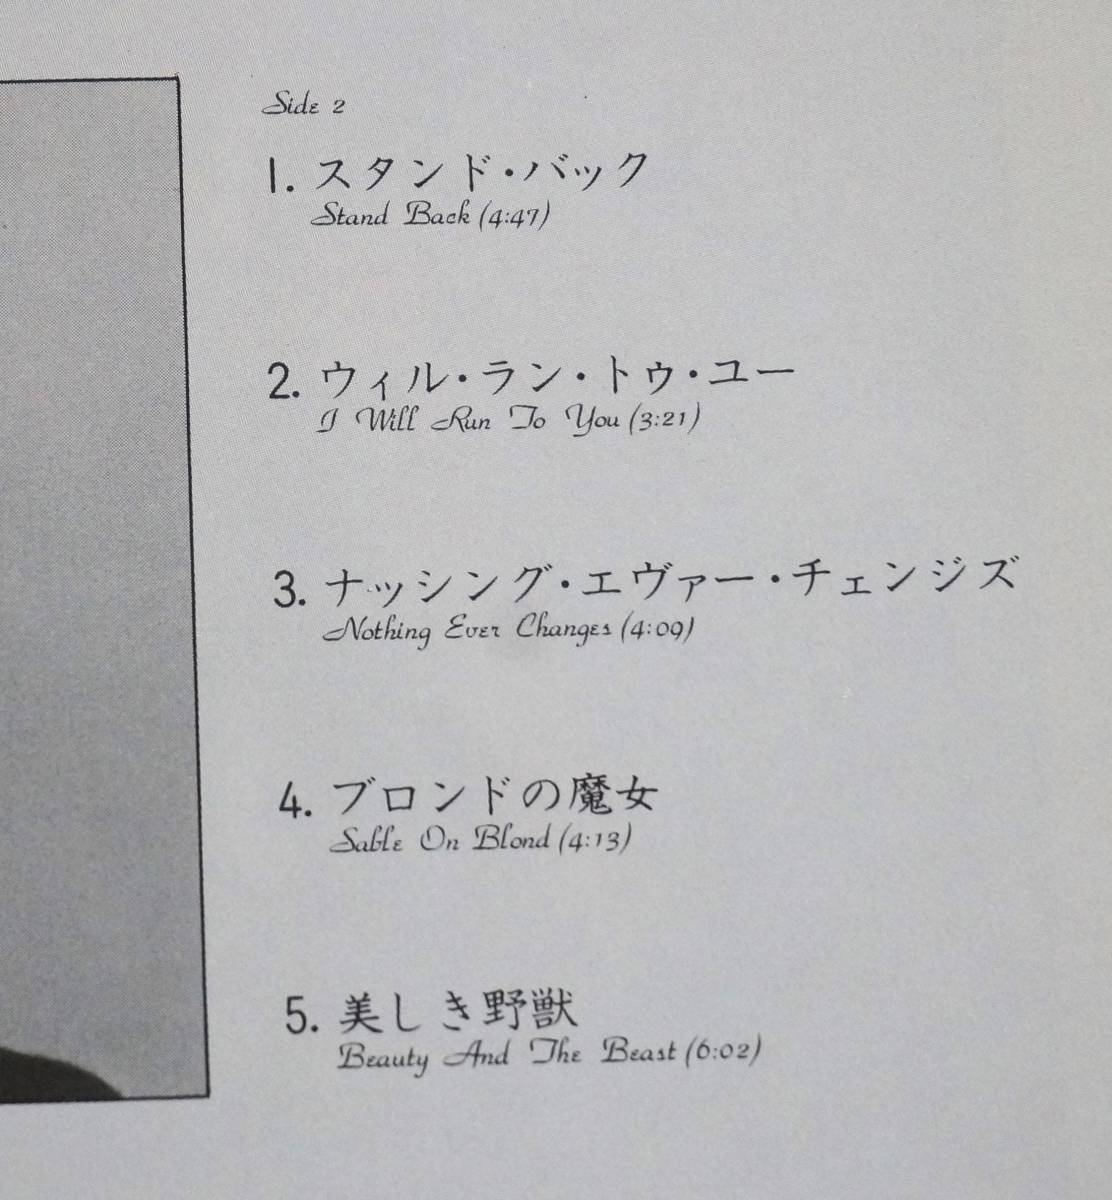 Side 2
1. スタンド・バック
Stand Back (4:47)
2. ウィル・ラン・トゥ・ユー
I Will Run To You (3:21)
3. ナッシング・エヴァー・チェンジズ
Nothing Ever Changes (4:09)
4. ブロンドの魔女
Sable On Blond (4:13)
5. 美しき野獣
Beauty And The Beast (6:02)